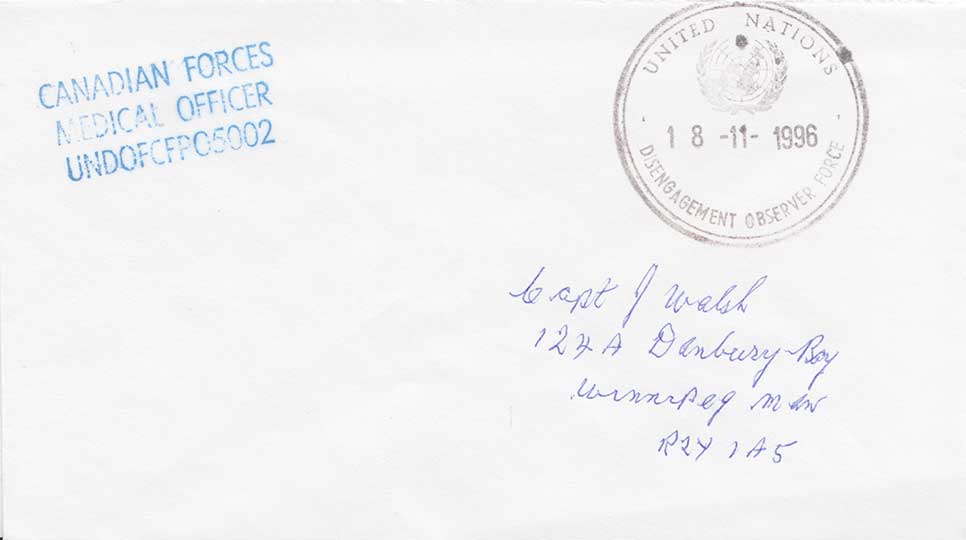 CANADIAN FORCES
MEDICAL OFFICER
UNDOFCFPO5002
UNITED NATIONS
18-11-1996
DISENGAGEMENT OBSERVER FORCE
Capt J Walsh
124A Danbury Bay
Winnipeg Man
R2Y 1A5